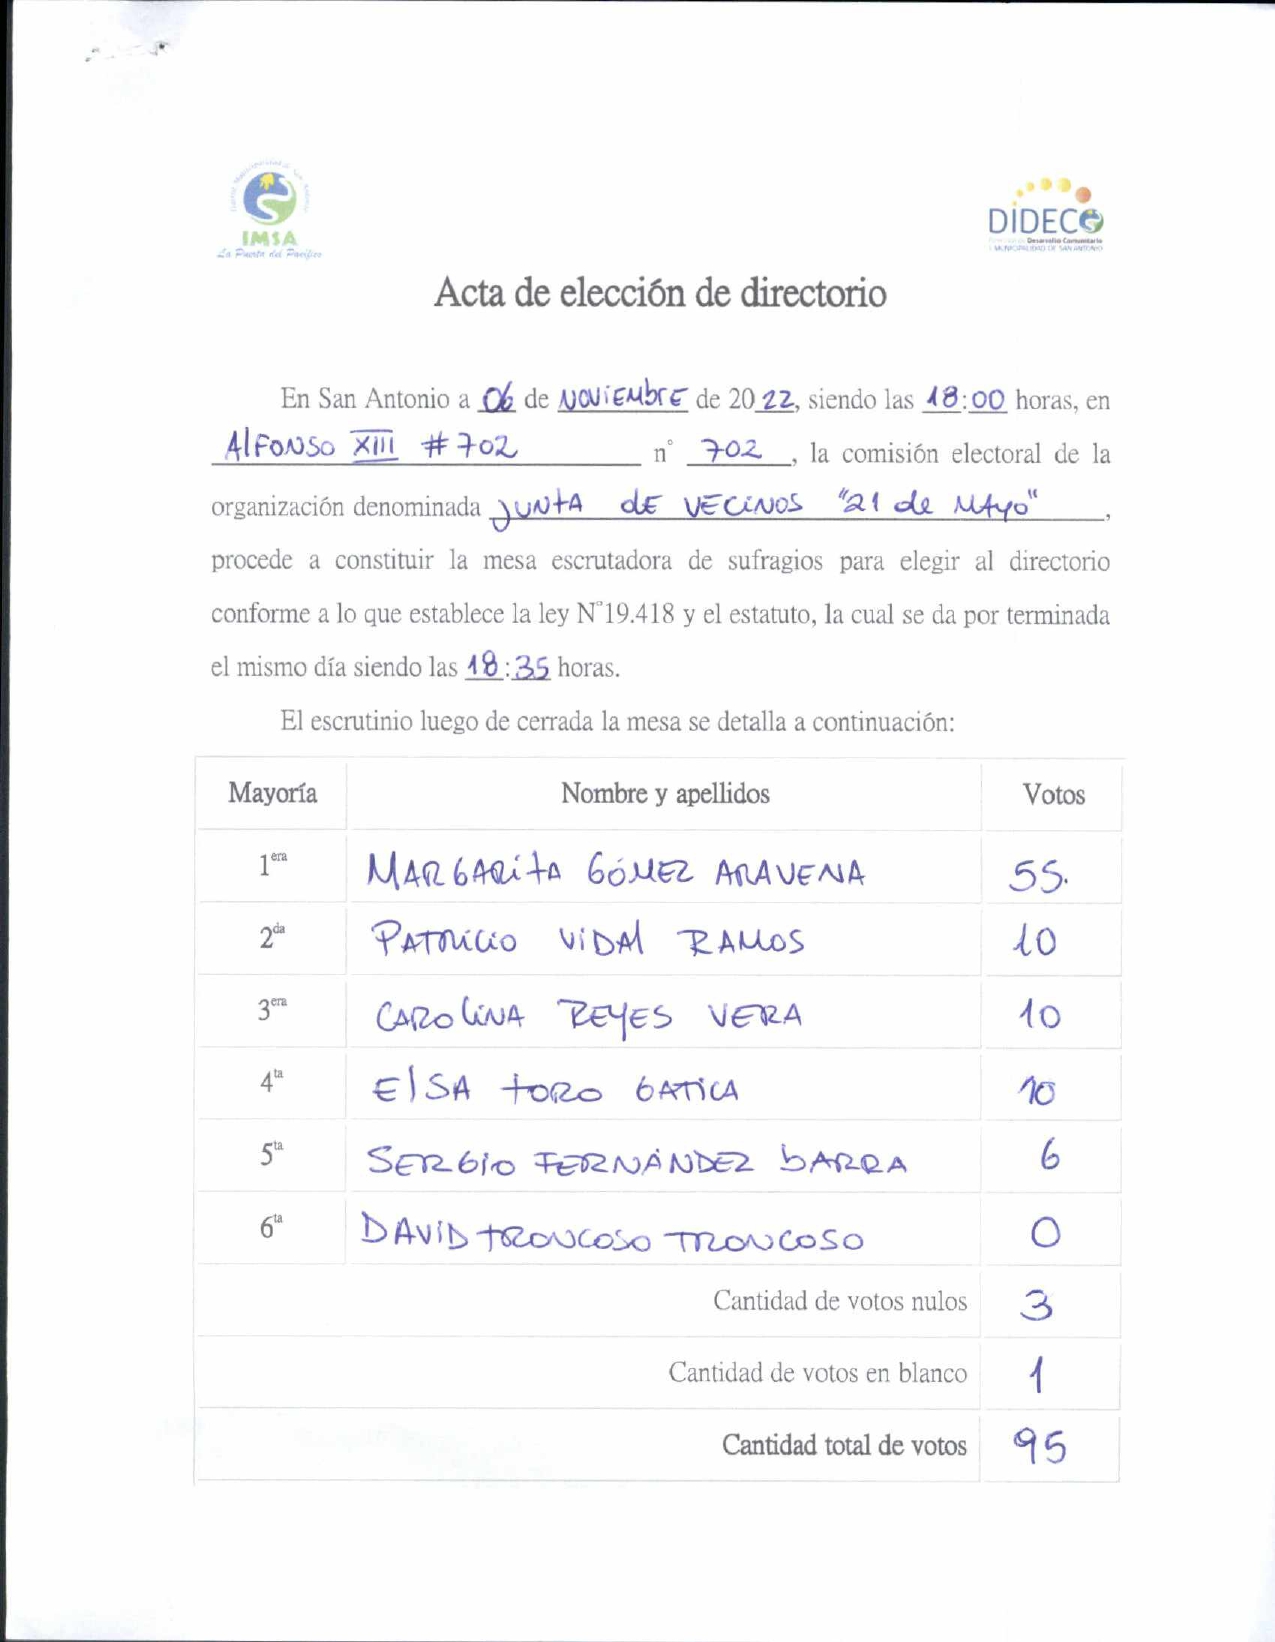 IMSA
La Puerta del Pacífico
DIDECO
Desarrollo Comunitario
I. MUNICIPALIDAD DE SAN ANTONIO
Acta de elección de directorio
En San Antonio a 06 de NOViEMbrE de 2022, siendo las 18:00 horas, en
AlFONSO XIII # 702 n° 702, la comisión electoral de la
organización denominada JUNTA dE VECiNOS "21 de MAyo",
procede a constituir la mesa escrutadora de sufragios para elegir al directorio
conforme a lo que establece la ley N°19.418 y el estatuto, la cual se da por terminada
el mismo día siendo las 18:35 horas.
El escrutinio luego de cerrada la mesa se detalla a continuación:
Mayoría Nombre y apellidos Votos
1era MARGARiTA GÓMEZ ARAVENA 55.
2da PATRiCiO ViDAl RAMOS 10
3era CAROLiNA REYES VERA 10
4ta ElSA TORO GATiCA 10
5ta SERGiO FERNÁNDEZ bARRA 6
6ta DAViD TRONCOSO TRONCOSO 0
Cantidad de votos nulos 3
Cantidad de votos en blanco 1
Cantidad total de votos 95